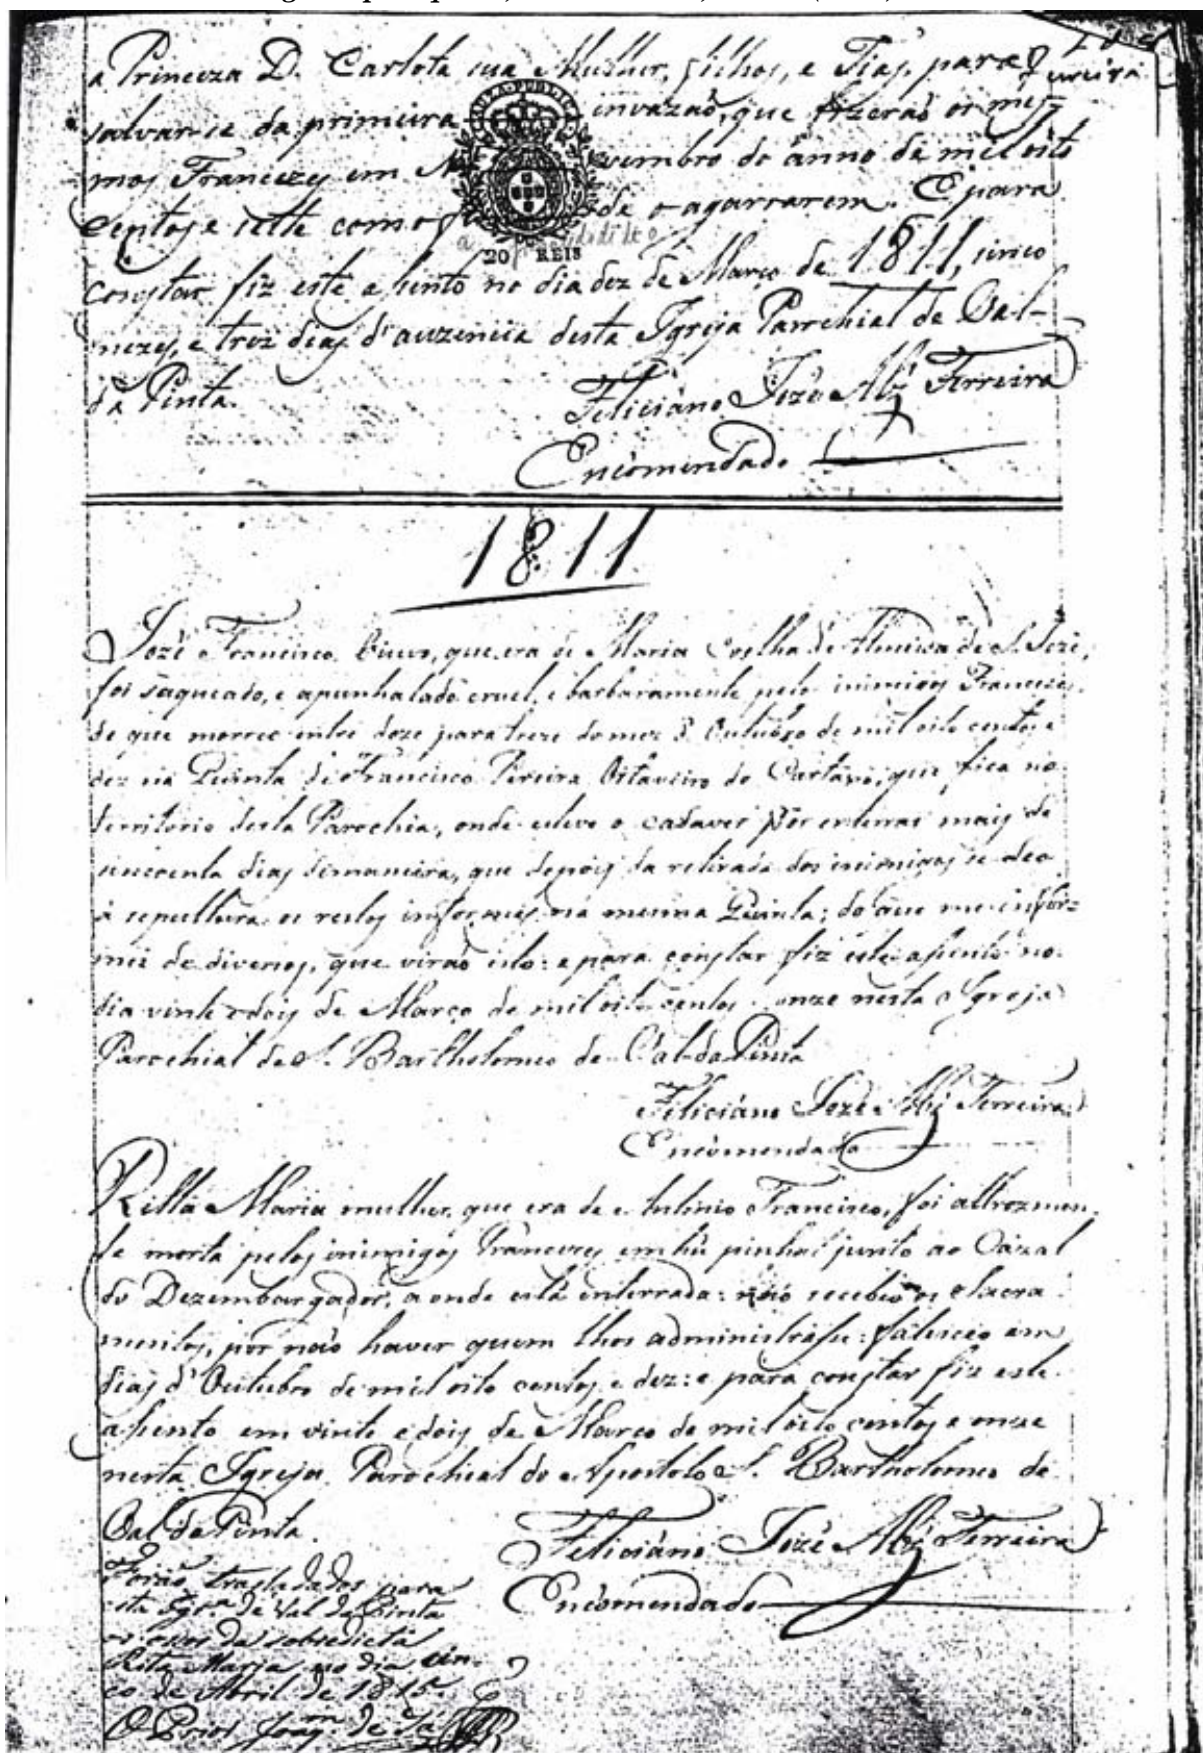 a Princeza D. Carlota sua Mulher, filhos, e Tias, para
Ferreira
salvar-se da primeira invazaõ, que fizeraõ os mes=
mos Francezes em Novembro do anno de mil oito
centos e sette com o fim de o agarrarem. E para
20 REIS
constar fiz este assento no dia dez de Março de 1811, sinco
mezes, e trez dias d'auzencia desta Igreja Parrochial de Val-
da Pinta.
Feliciano Jozé Alz Ferreira
Encomendado
1811
Jozé Francisco Viuvo, que era de Maria Coelha de Almeida de S. Jozé,
foi saqueado, e apunhalado cruel, e barbaramente pelos inimigos Francezes,
de que morreo entre doze para treze do mez d'Outubro de mil oito centos e
dez na Quinta de Francisco Pereira do Cartaxo, que fica no
territorio desta Parochia, onde esteve o cadaver por enterrar mais de
sincoenta dias de maneira, que depois da retirada dos inimigos se deo
á sepultura os restos informes na mesma Quinta; do que me infor=
mei de diversos, que viraõ isto: e para constar fiz este assento no
dia vinte e dois de Março de mil oito centos e onze nesta Igreja
Parochial de S. Bartholomeo de Val da Pinta
Feliciano Jozé Alz Ferreira
Encomendado
Ritta Maria mulher, que era de Antonio Francisco, foi attrozmen-
te morta pelos inimigos Francezes em hũ pinhal junto ao Cazal
do Dezembargador, a onde está enterrada: naõ recebeo os Sacra-
mentos, por naõ haver quem lhos administrasse: faleceo em
dias d'Outubro de mil oito centos e dez: e para constar fiz este
assento em vinte e dois de Março de mil oito centos e onze
nesta Igreja Parochial do Apostolo S. Bartholomeo de
Val da Pinta.
Feliciano Jozé Alz Ferreira
Encomendado
Foraõ trasladados para
esta Igr.ª de Val da Pinta
os ossos da sobredicta
Rita Maria, no dia cin-
co de Abril de 1815.
O Prior Joaq.m de Sá